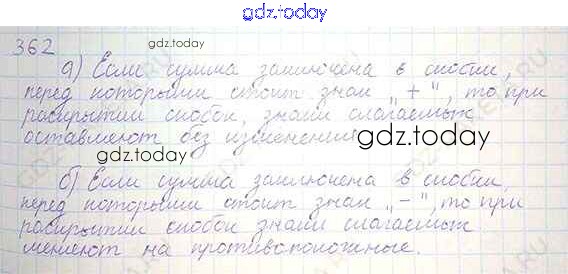 gdz.today
362 gdz.today
а) Если сумма заключена в скобки,
перед которыми стоит знак „+", то при
раскрытии скобок, знаки слагаемых
оставляют без изменений
gdz.today
б) Если сумма заключена в скобки,
перед которыми стоит знак „–", то при
раскрытии скобок знаки слагаемых
меняют на противоположные.
gdz.today